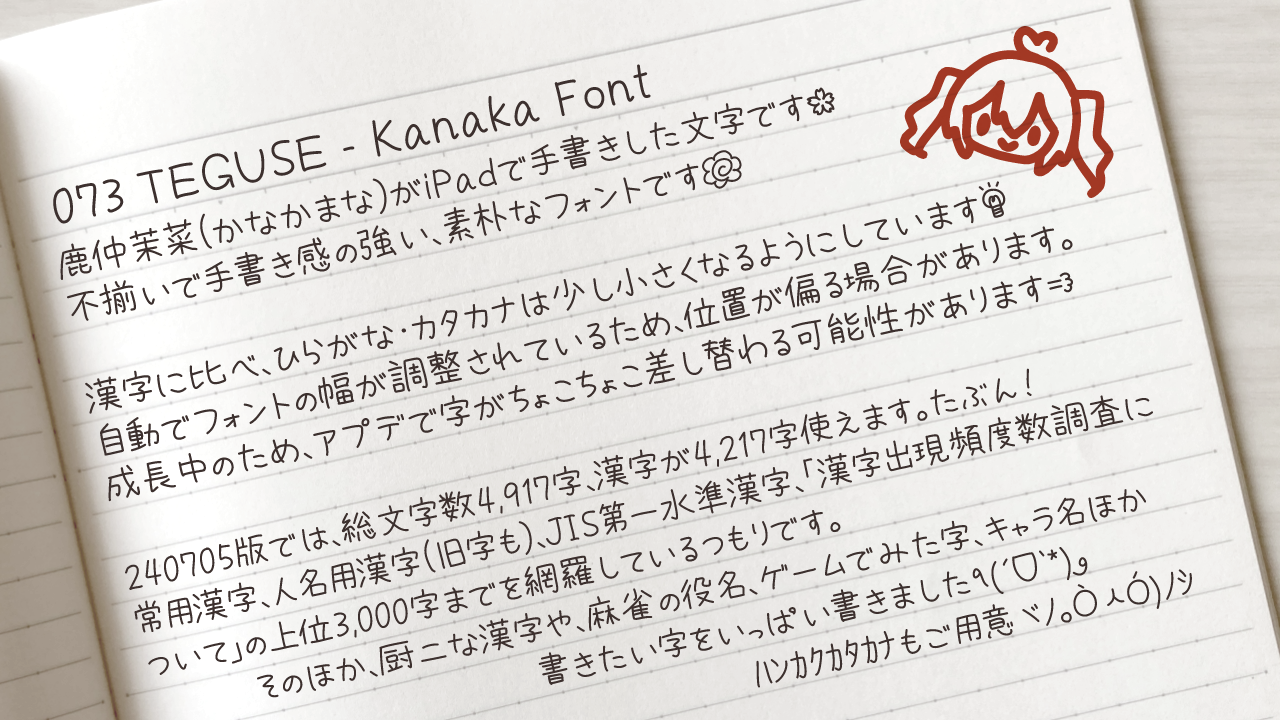 073 TEGUSE - Kanaka Font
鹿仲茉菜(かなかまな)がiPadで手書きした文字です
不揃いで手書き感の強い、素朴なフォントです
漢字に比べ、ひらがな・カタカナは少し小さくなるようにしています
自動でフォントの幅が調整されているため、位置が偏る場合があります。
成長中のため、アプデで字がちょこちょこ差し替わる可能性があります=3
240705版では、総文字数4,917字、漢字が4,217字使えます。たぶん!
常用漢字、人名用漢字(旧字も)、JIS第一水準漢字、「漢字出現頻度数調査に
ついて」の上位3,000字までを網羅しているつもりです。
そのほか、厨ニな漢字や、麻雀の役名、ゲームでみた字、キャラ名ほか
書きたい字をいっぱい書きました٩(ˊᗜˋ*)و
ハンカクカタカナもご用意ヾノ。ÒㅅÓ)ノシ